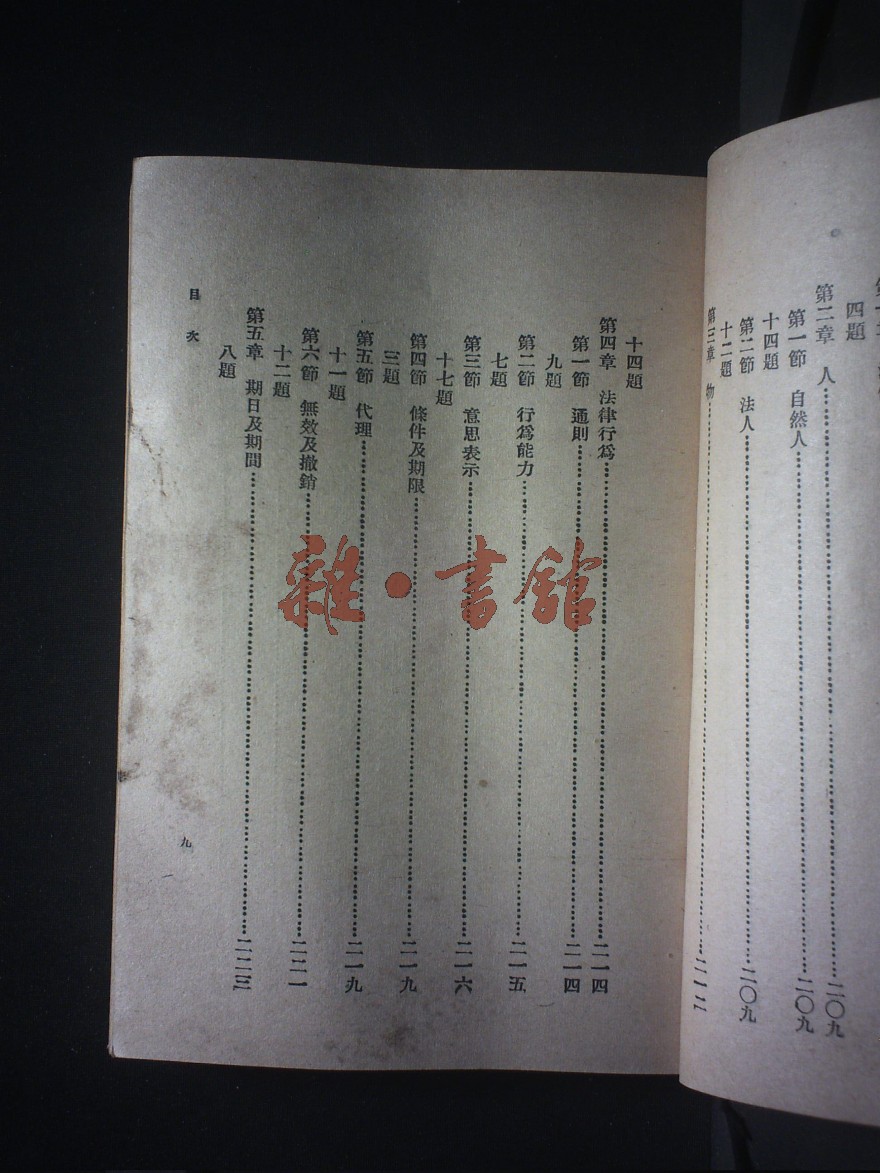 四題
第二章 人……二〇九
第一節 自然人……二〇九
十四題
第二節 法人……二〇九
十二題
第三章 物……二一二
十四題
第四章 法律行爲……二一四
第一節 通則……二一四
九題
第二節 行爲能力……二一五
七題
第三節 意思表示……二一六
十七題
第四節 條件及期限……二一九
三題
第五節 代理……二一九
十一題
第六節 無效及撤銷……二二一
十二題
第五章 期日及期間……二二三
八題
目次 九
雜·書館